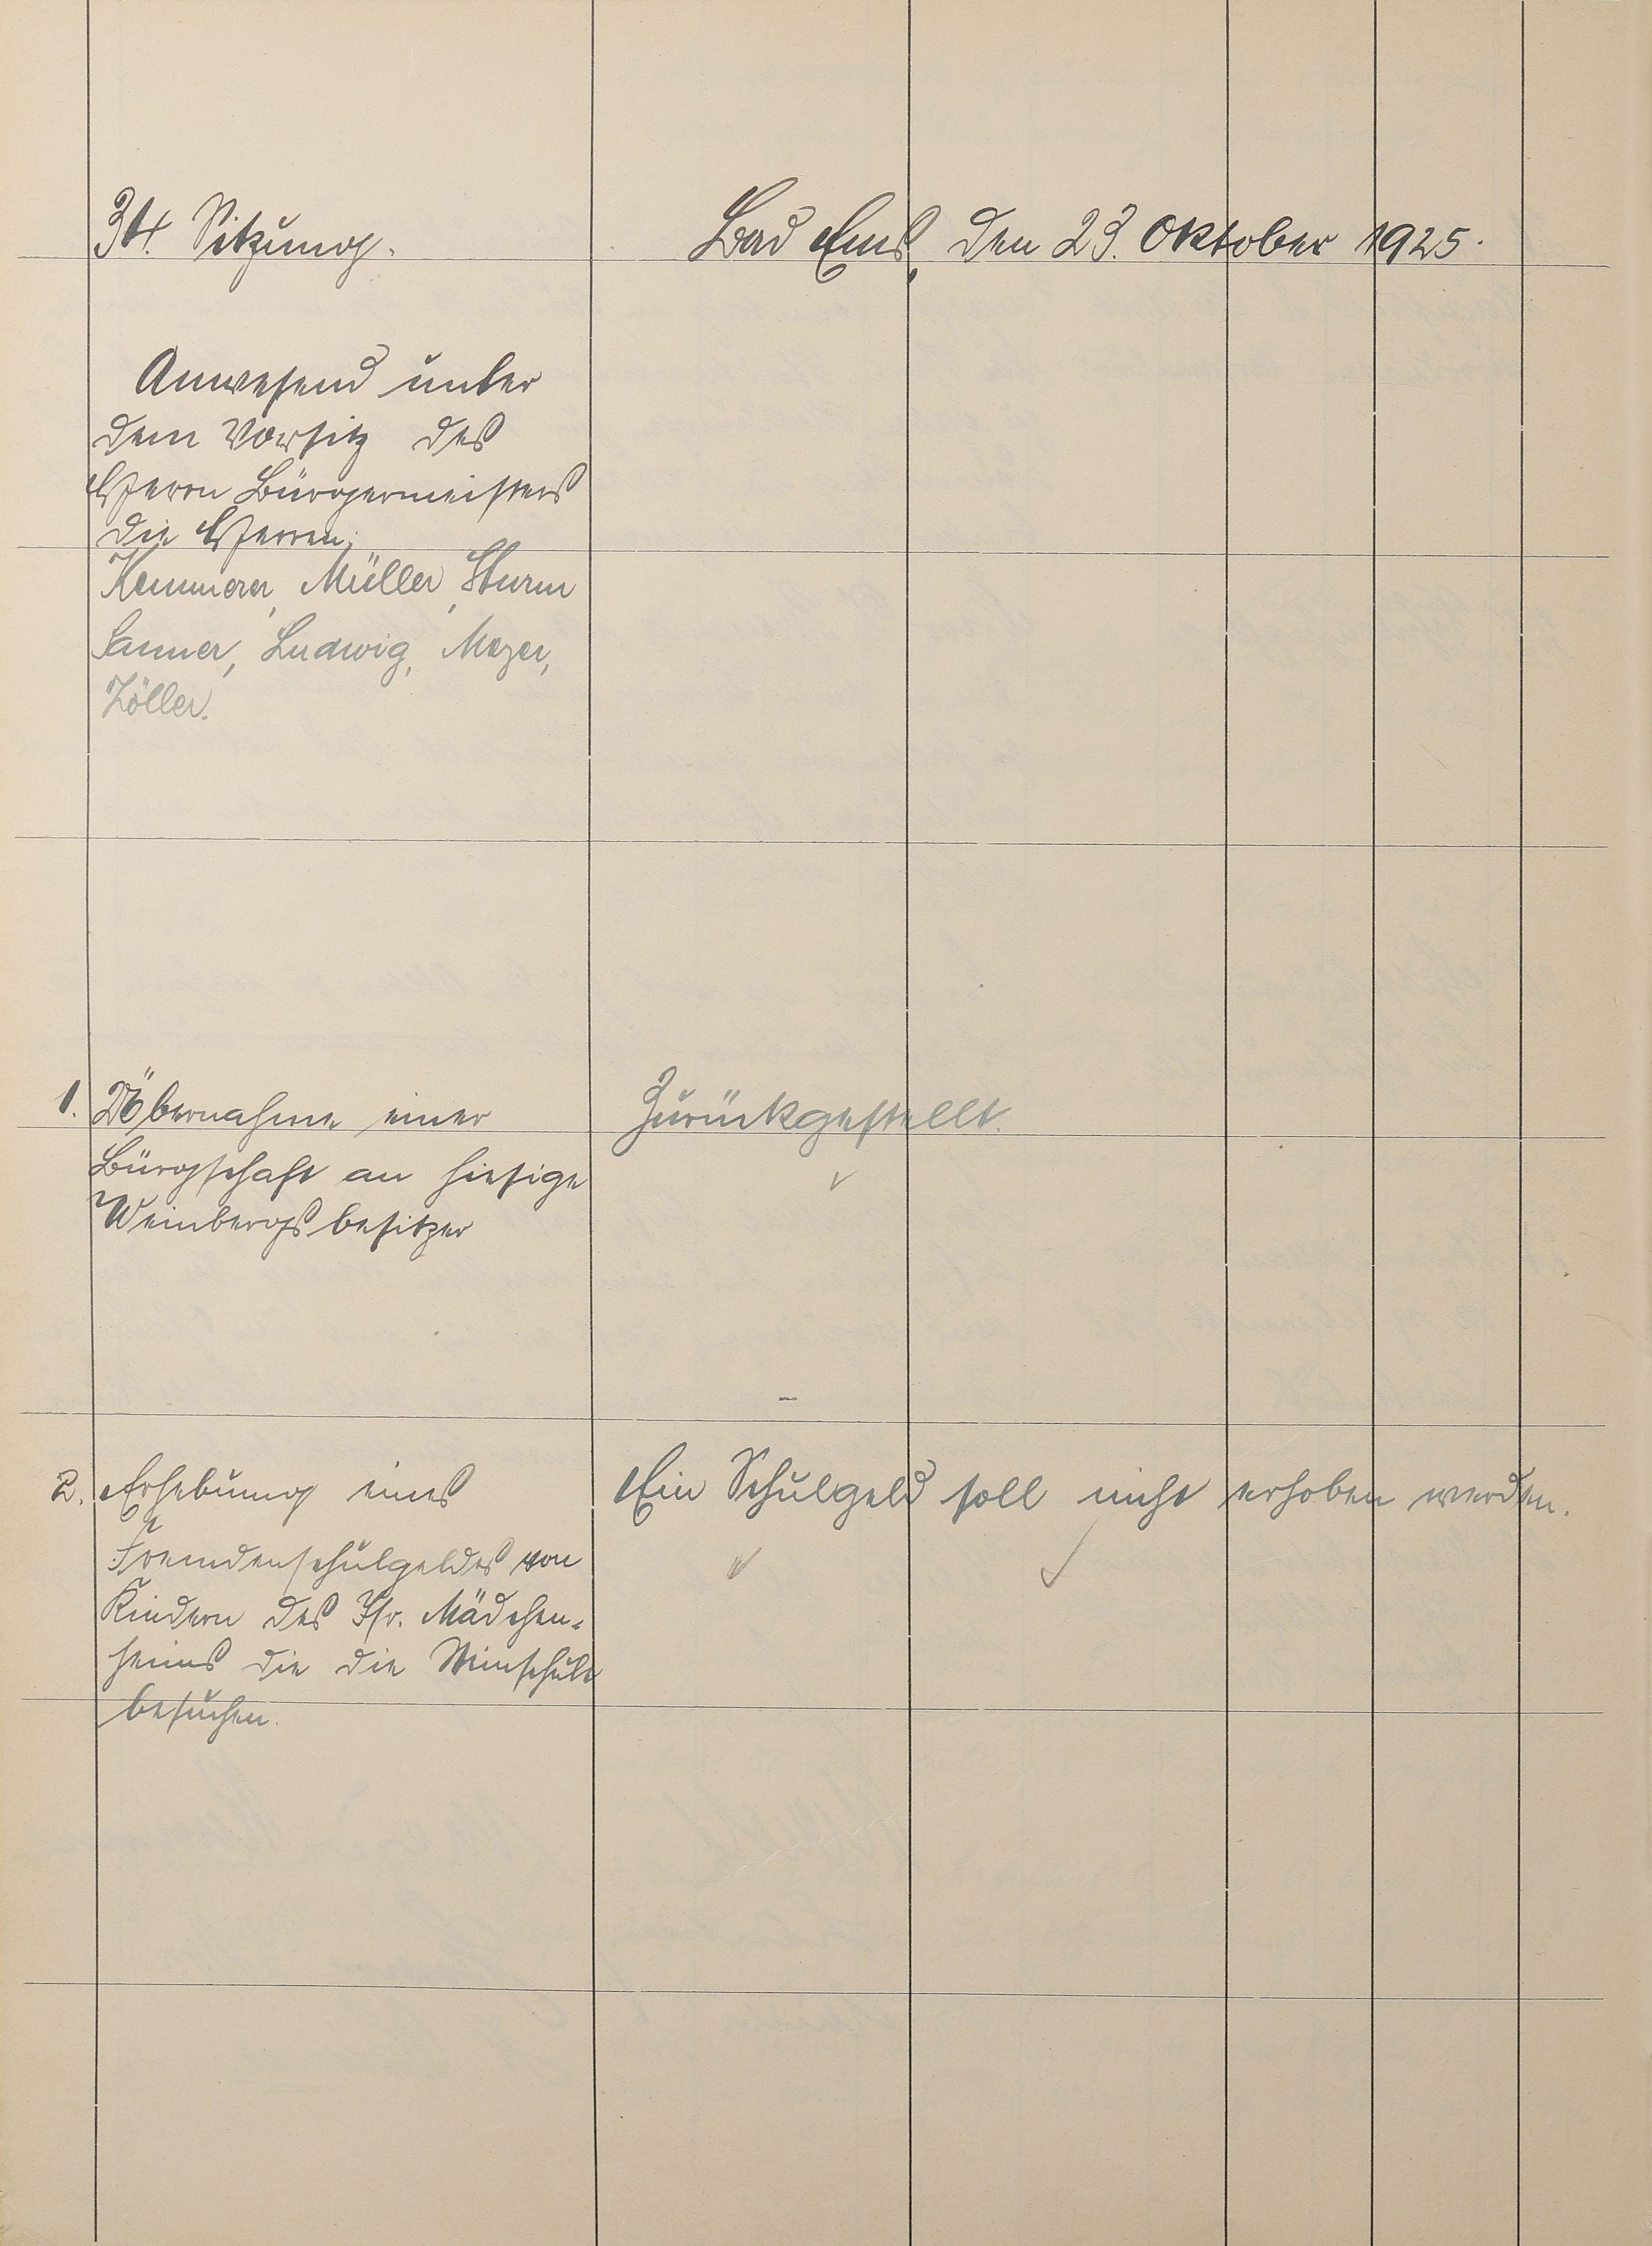 34. Sitzung.
Bad Ems, den 23. Oktober 1925.
Anwesend unter
dem Vorsitz des
Herrn Bürgermeisters
die Herren:
Kemmerer, Müller, Sturm
Sanner, Ludwig, Meyer,
Zöller.
1. Übernahme einer
Bürgschaft an hiesige
Weinbergsbesitzer
Zurückgestellt.
2. Erhebung eines
Fremdenschulgeldes von
Kindern des Isr. Mädchen-
heims die die
besuchen.
Ein Schulgeld soll nicht erhoben werden.